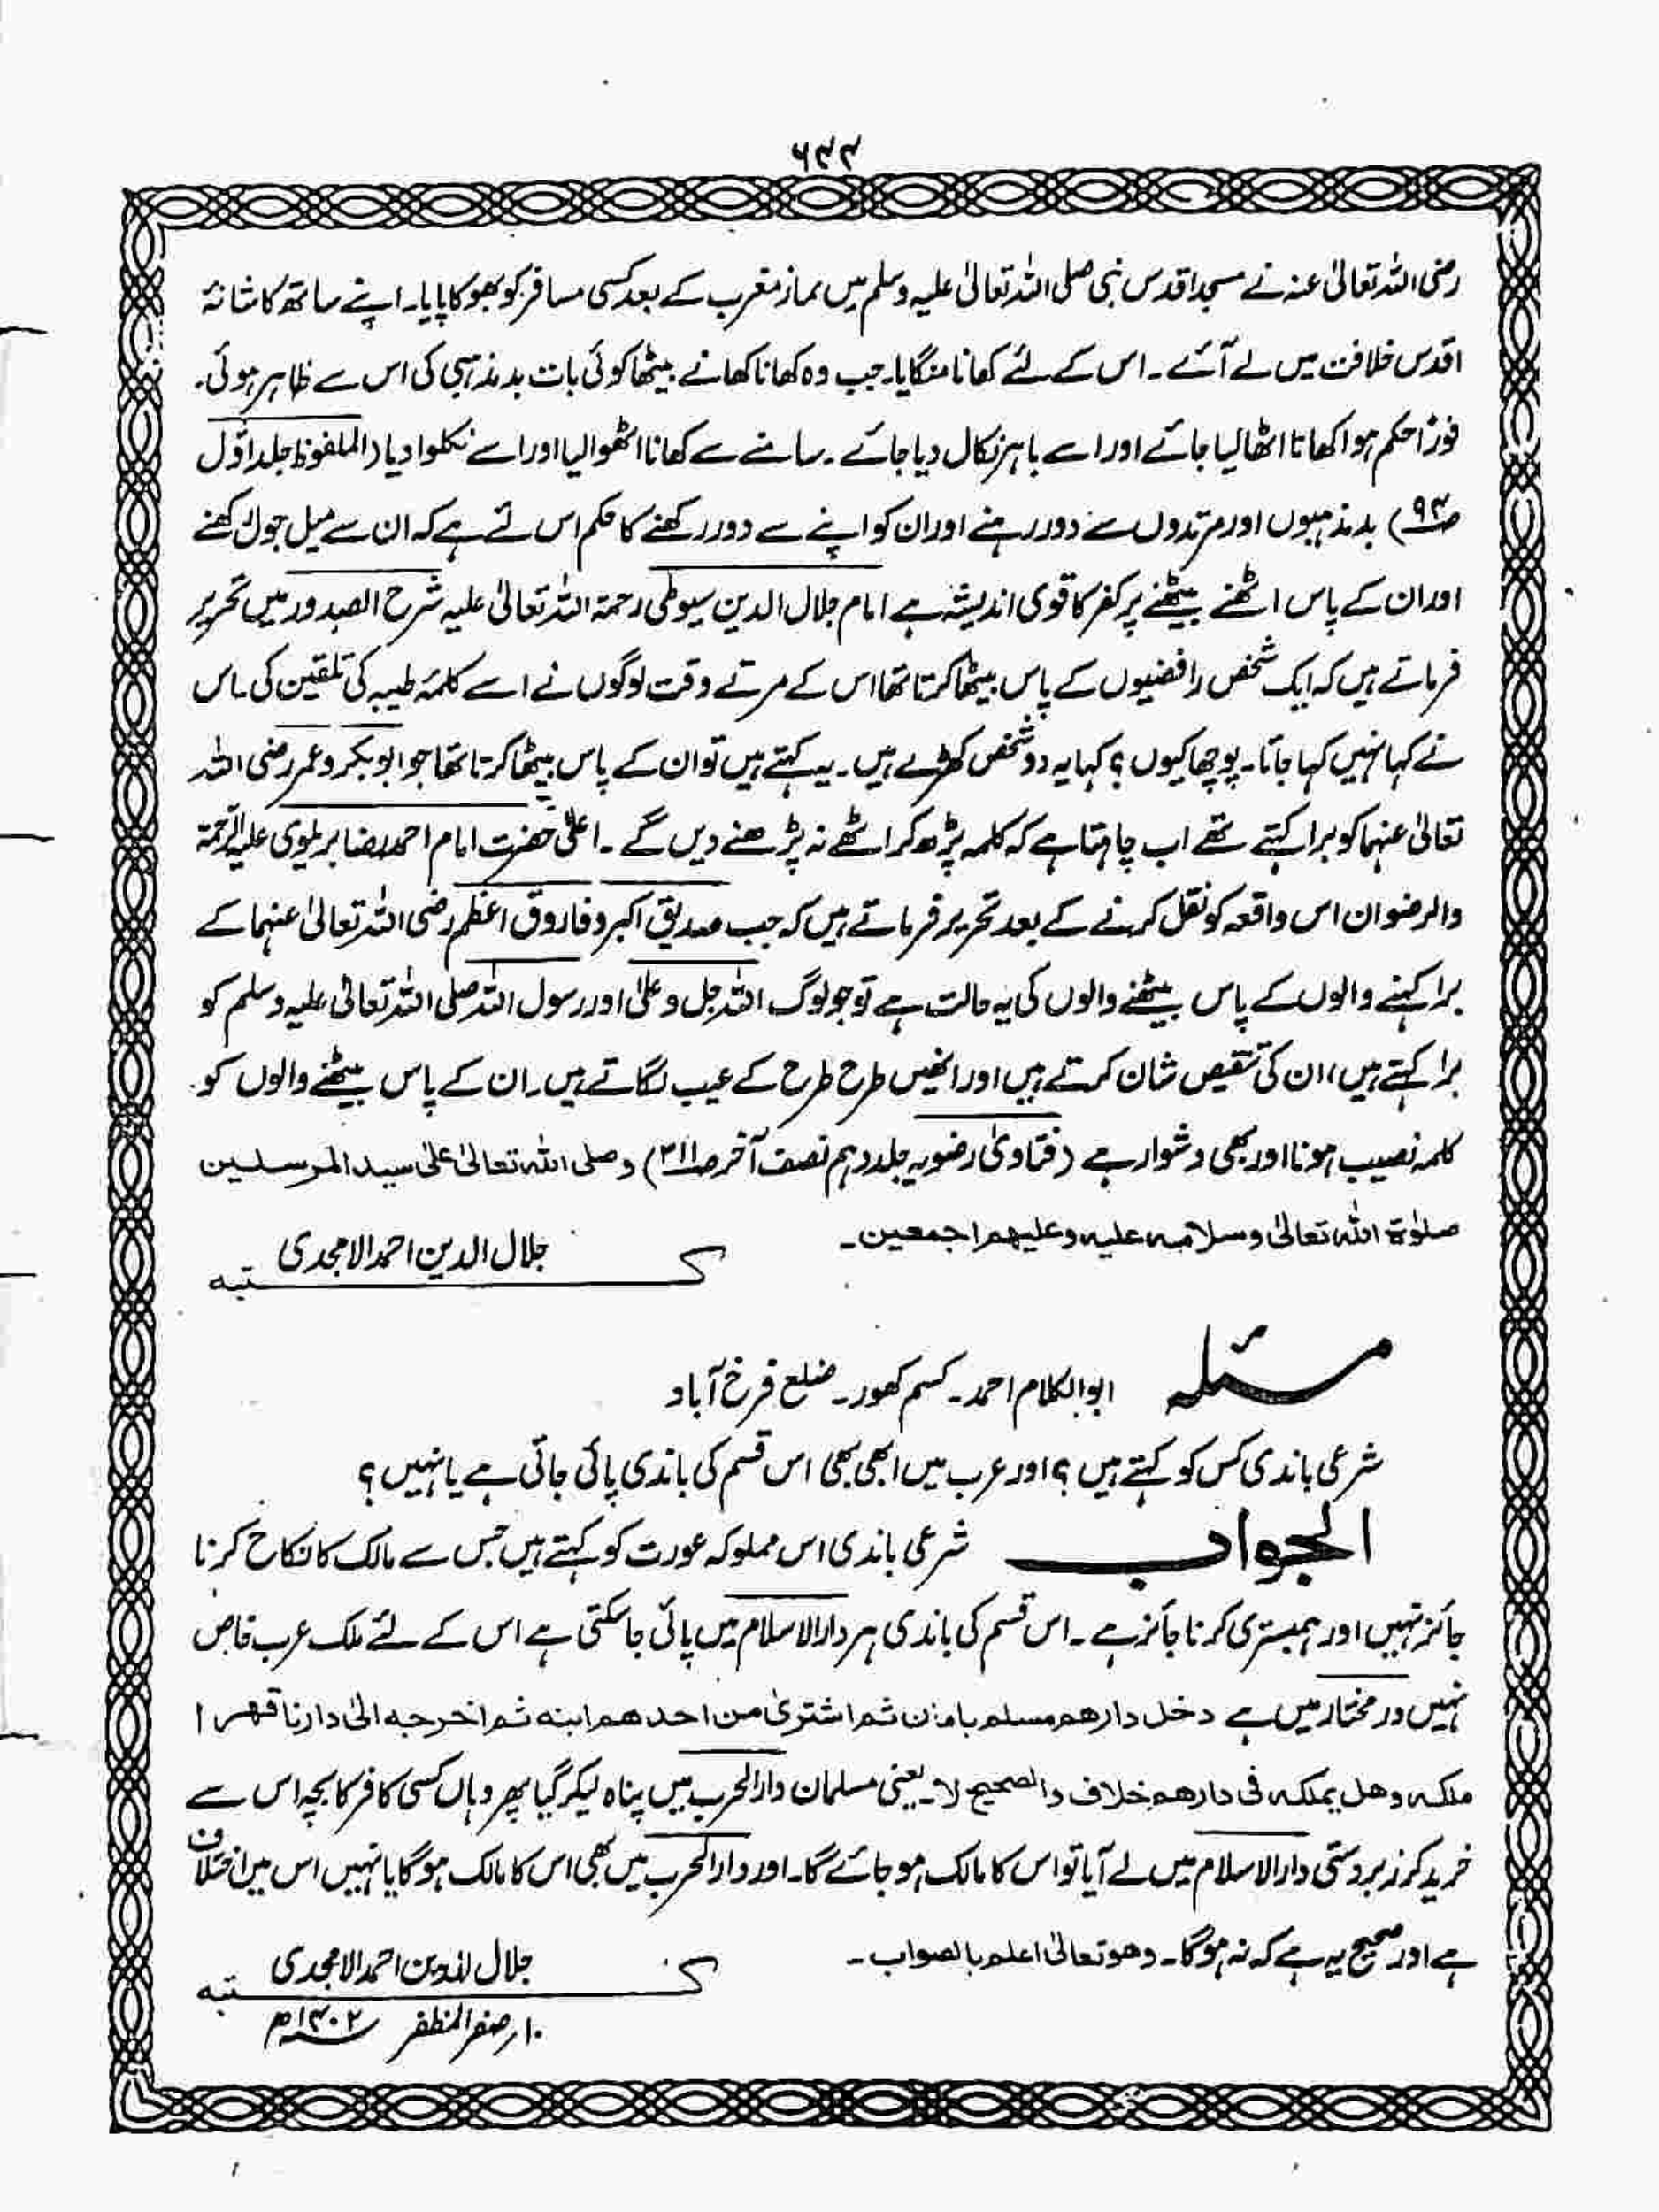 ۶۳۲
رضی اللہ تعالیٰ عنہ نے مسجد اقدس نبی صلی اللہ تعالیٰ علیہ وسلم میں نماز مغرب کے بعد کسی مسافر کو بھوکا پایا۔ اپنے ساتھ کاشانۂ
اقدس خلافت میں لے آئے۔ اس کے لئے کھانا منگایا۔ جب وہ کھانا کھانے بیٹھا کوئی بات بدمذہبی کی اس سے ظاہر ہوئی۔
فورًا حکم ہوا کھانا اٹھا لیا جائے اور اسے باہر نکال دیا جائے۔ سامنے سے کھانا اٹھوالیا اور اسے نکلوا دیا (الملفوظ جلد اوّل
ص۹۳) بدمذہبوں اور مرتدوں سے دور رہنے اور ان کو اپنے سے دور رکھنے کا حکم اس لئے ہے کہ ان سے میل جول رکھنے
اور ان کے پاس اٹھنے بیٹھنے پر کفر کا قوی اندیشہ ہے امام جلال الدین سیوطی رحمۃ اللہ تعالیٰ علیہ شرح الصدور میں تحریر
فرماتے ہیں کہ ایک شخص رافضیوں کے پاس بیٹھا کرتا تھا اس کے مرتے وقت لوگوں نے اسے کلمۂ طیبہ کی تلقین کی۔ اس
نے کہا نہیں کہا جاتا۔ پوچھا کیوں؟ کہا یہ دو شخص کھڑے ہیں۔ یہ کہتے ہیں تو ان کے پاس بیٹھا کرتا تھا جو ابوبکر و عمر رضی اللہ
تعالیٰ عنہما کو برا کہتے تھے اب چاہتا ہے کہ کلمہ پڑھ کر اٹھے نہ پڑھنے دیں گے۔ اعلیٰ حضرت امام احمد رضا بریلوی علیہ الرحمۃ
والرضوان اس واقعہ کو نقل کرنے کے بعد تحریر فرماتے ہیں کہ جب صدیق اکبر و فاروق اعظم رضی اللہ تعالیٰ عنہما کے
برا کہنے والوں کے پاس بیٹھنے والوں کی یہ حالت ہے تو جو لوگ اللہ جل و علیٰ اور رسول اللہ صلی اللہ تعالیٰ علیہ وسلم کو
برا کہتے ہیں، ان کی تنقیص شان کرتے ہیں اور انھیں طرح طرح کے عیب لگاتے ہیں۔ ان کے پاس بیٹھنے والوں کو
کلمہ نصیب ہونا اور بھی دشوار ہے (فتاویٰ رضویہ جلد دہم نصف آخر ص۳۱۱) وصلی اللہ تعالیٰ علیٰ سید المرسلین
صلوٰۃ اللہ تعالیٰ وسلامہ علیہ وعلیہم اجمعین۔
کتبہ جلال الدین احمد الامجدی
مسئلہ ابوالکلام احمد۔ کسم کھور۔ ضلع فرخ آباد
شرعی باندی کس کو کہتے ہیں؟ اور عرب میں ابھی بھی اس قسم کی باندی پائی جاتی ہے یا نہیں؟
الجواب شرعی باندی اس مملوکہ عورت کو کہتے ہیں جس سے مالک کا نکاح کرنا
جائز نہیں اور ہمبستری کرنا جائز ہے۔ اس قسم کی باندی ہر دارالاسلام میں پائی جاسکتی ہے اس کے لئے ملک عرب خاص
نہیں در مختار میں ہے دخل دارھم مسلم بامان ثم اشتریٰ من احدھم ابنہ ثم اخرجہ الیٰ دارنا قھرا
ملکہ وھل یملکہ فی دارھم خلاف والصحیح لا۔ یعنی مسلمان دارالحرب میں پناہ لیکر گیا پھر وہاں کسی کافر کا بچہ اس سے
خرید کر زبردستی دارالاسلام میں لے آیا تو اس کا مالک ہو جائے گا۔ اور دارالحرب میں بھی اس کا مالک ہوگا یا نہیں اس میں اختلاف
ہے اور صحیح یہ ہے کہ نہ ہوگا۔ وھو تعالیٰ اعلم بالصواب۔
کتبہ جلال الدین احمد الامجدی
۱۰؍ صفر المظفر ۱۴۰۲ھ